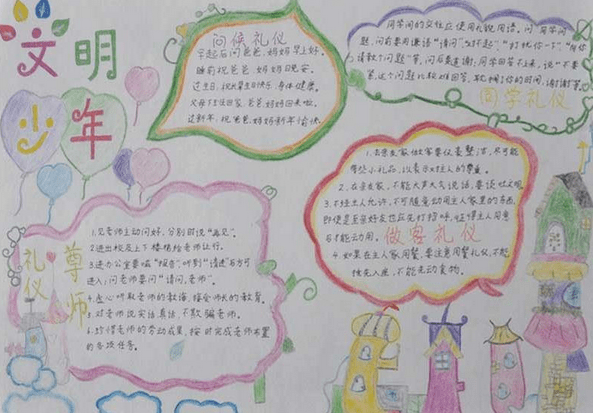 文明
少年
问候礼仪
早起后问爸爸、妈妈早上好。
睡前祝爸爸、妈妈晚安。
过生日，祝长辈生日快乐，身体健康。
父母下班回家，爸爸、妈妈回来啦。
过新年，祝爸爸、妈妈新年愉快。
同学间的交往应使用礼貌用语。问同学问
题，问前要用谦语“请问”、“对不起”、“打扰你一下”、
请教个问题”等，问后要道谢，同学回答不上来，说“不要
紧，这个问题比较难回答，耽搁了你的时间，谢谢”等。
同学礼仪
1.去亲友家做客要仪表整洁，尽可能
带些小礼品，以表示对主人的尊重。
2.在亲友家，不能大声大气说话，要谈吐文明。
3.不经主人允许，不可随意动用主人家里的东西，
即使是至亲好友也应先打招呼，征得主人同意
后才能动用。
做客礼仪
4.如果在主人家用餐，要注意用餐礼仪，不能
抢先入座，不能先动食物。
1.见老师主动问好，分别时说“再见”。
2.进出校及上下楼梯给老师让行。
3.进办公室要喊“报告”，听到“请进”后方可
进入；问老师要问“请问，老师”。
4.虚心听取老师的教诲，接受师长的教育。
5.对老师说实话、真话，不欺骗老师。
6.珍惜老师的劳动成果，按时完成老师布置
的各项任务。
尊师
礼仪